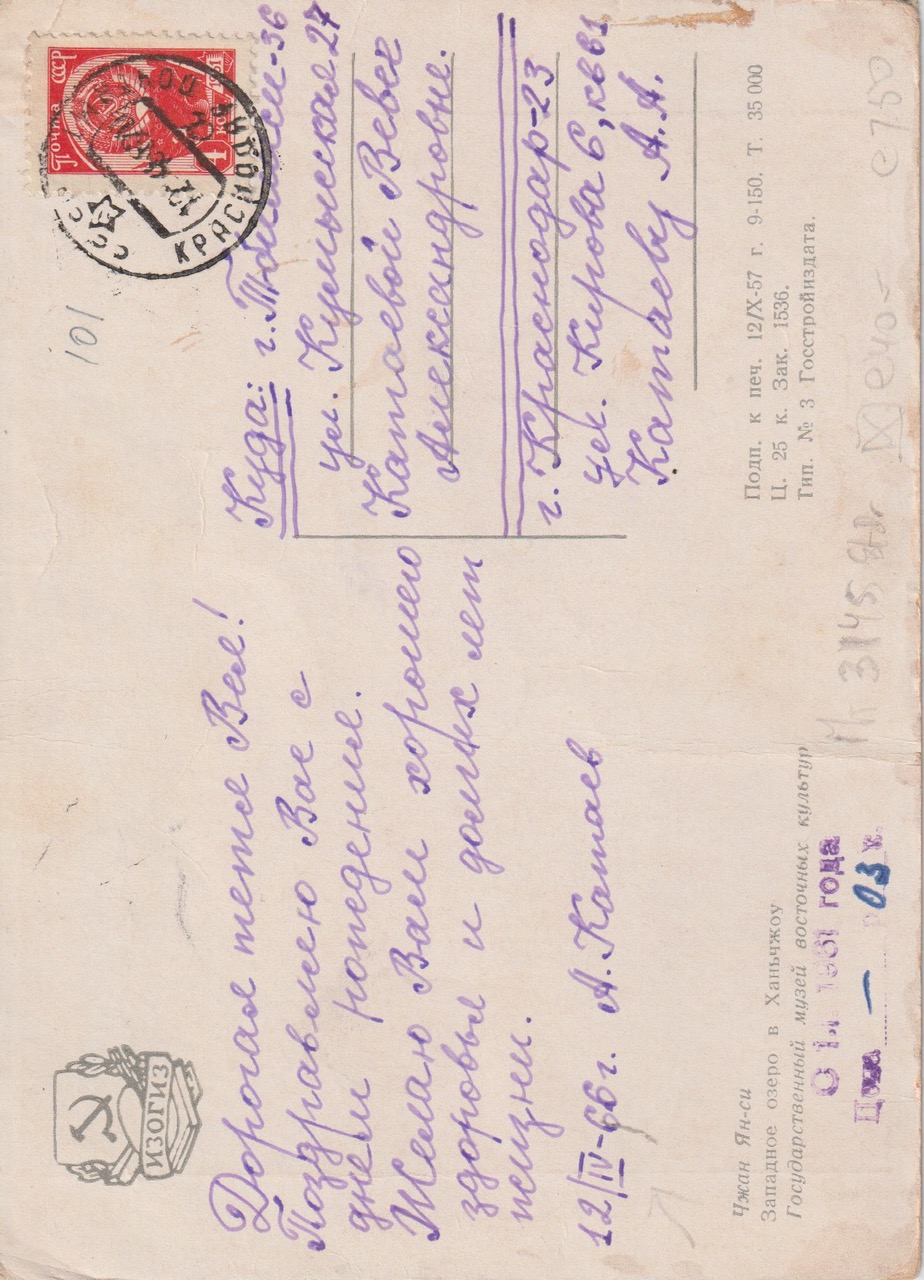 ИЗОГИЗ
Дорогая тетя Вея!
Поздравляю Вас с
днем рождения.
Желаю Вам хорошего
здоровья и долгих лет
жизни.
12/IV-66 г. А. Катаев
Чжан Ян-си
Западное озеро в Ханьчжоу
Государственный музей восточных культур
С 1.I. 1961 года
Цена — р 03 к.
Почта СССР
1 коп
КРАСНОДАР
СССР
101
Куда: г. Тбилиси-36
ул.
Катаевой Вере
Александровне.
г. Краснодар-23
ул. Кирова 6, кв 81
Катаеву А. А.
Подп. к печ. 12/X-57 г. 9-150. Т. 35 000
Ц. 25 к. Зак. 1536.
Тип. № 3 Госстройиздата.
3145
e40-
e7.50